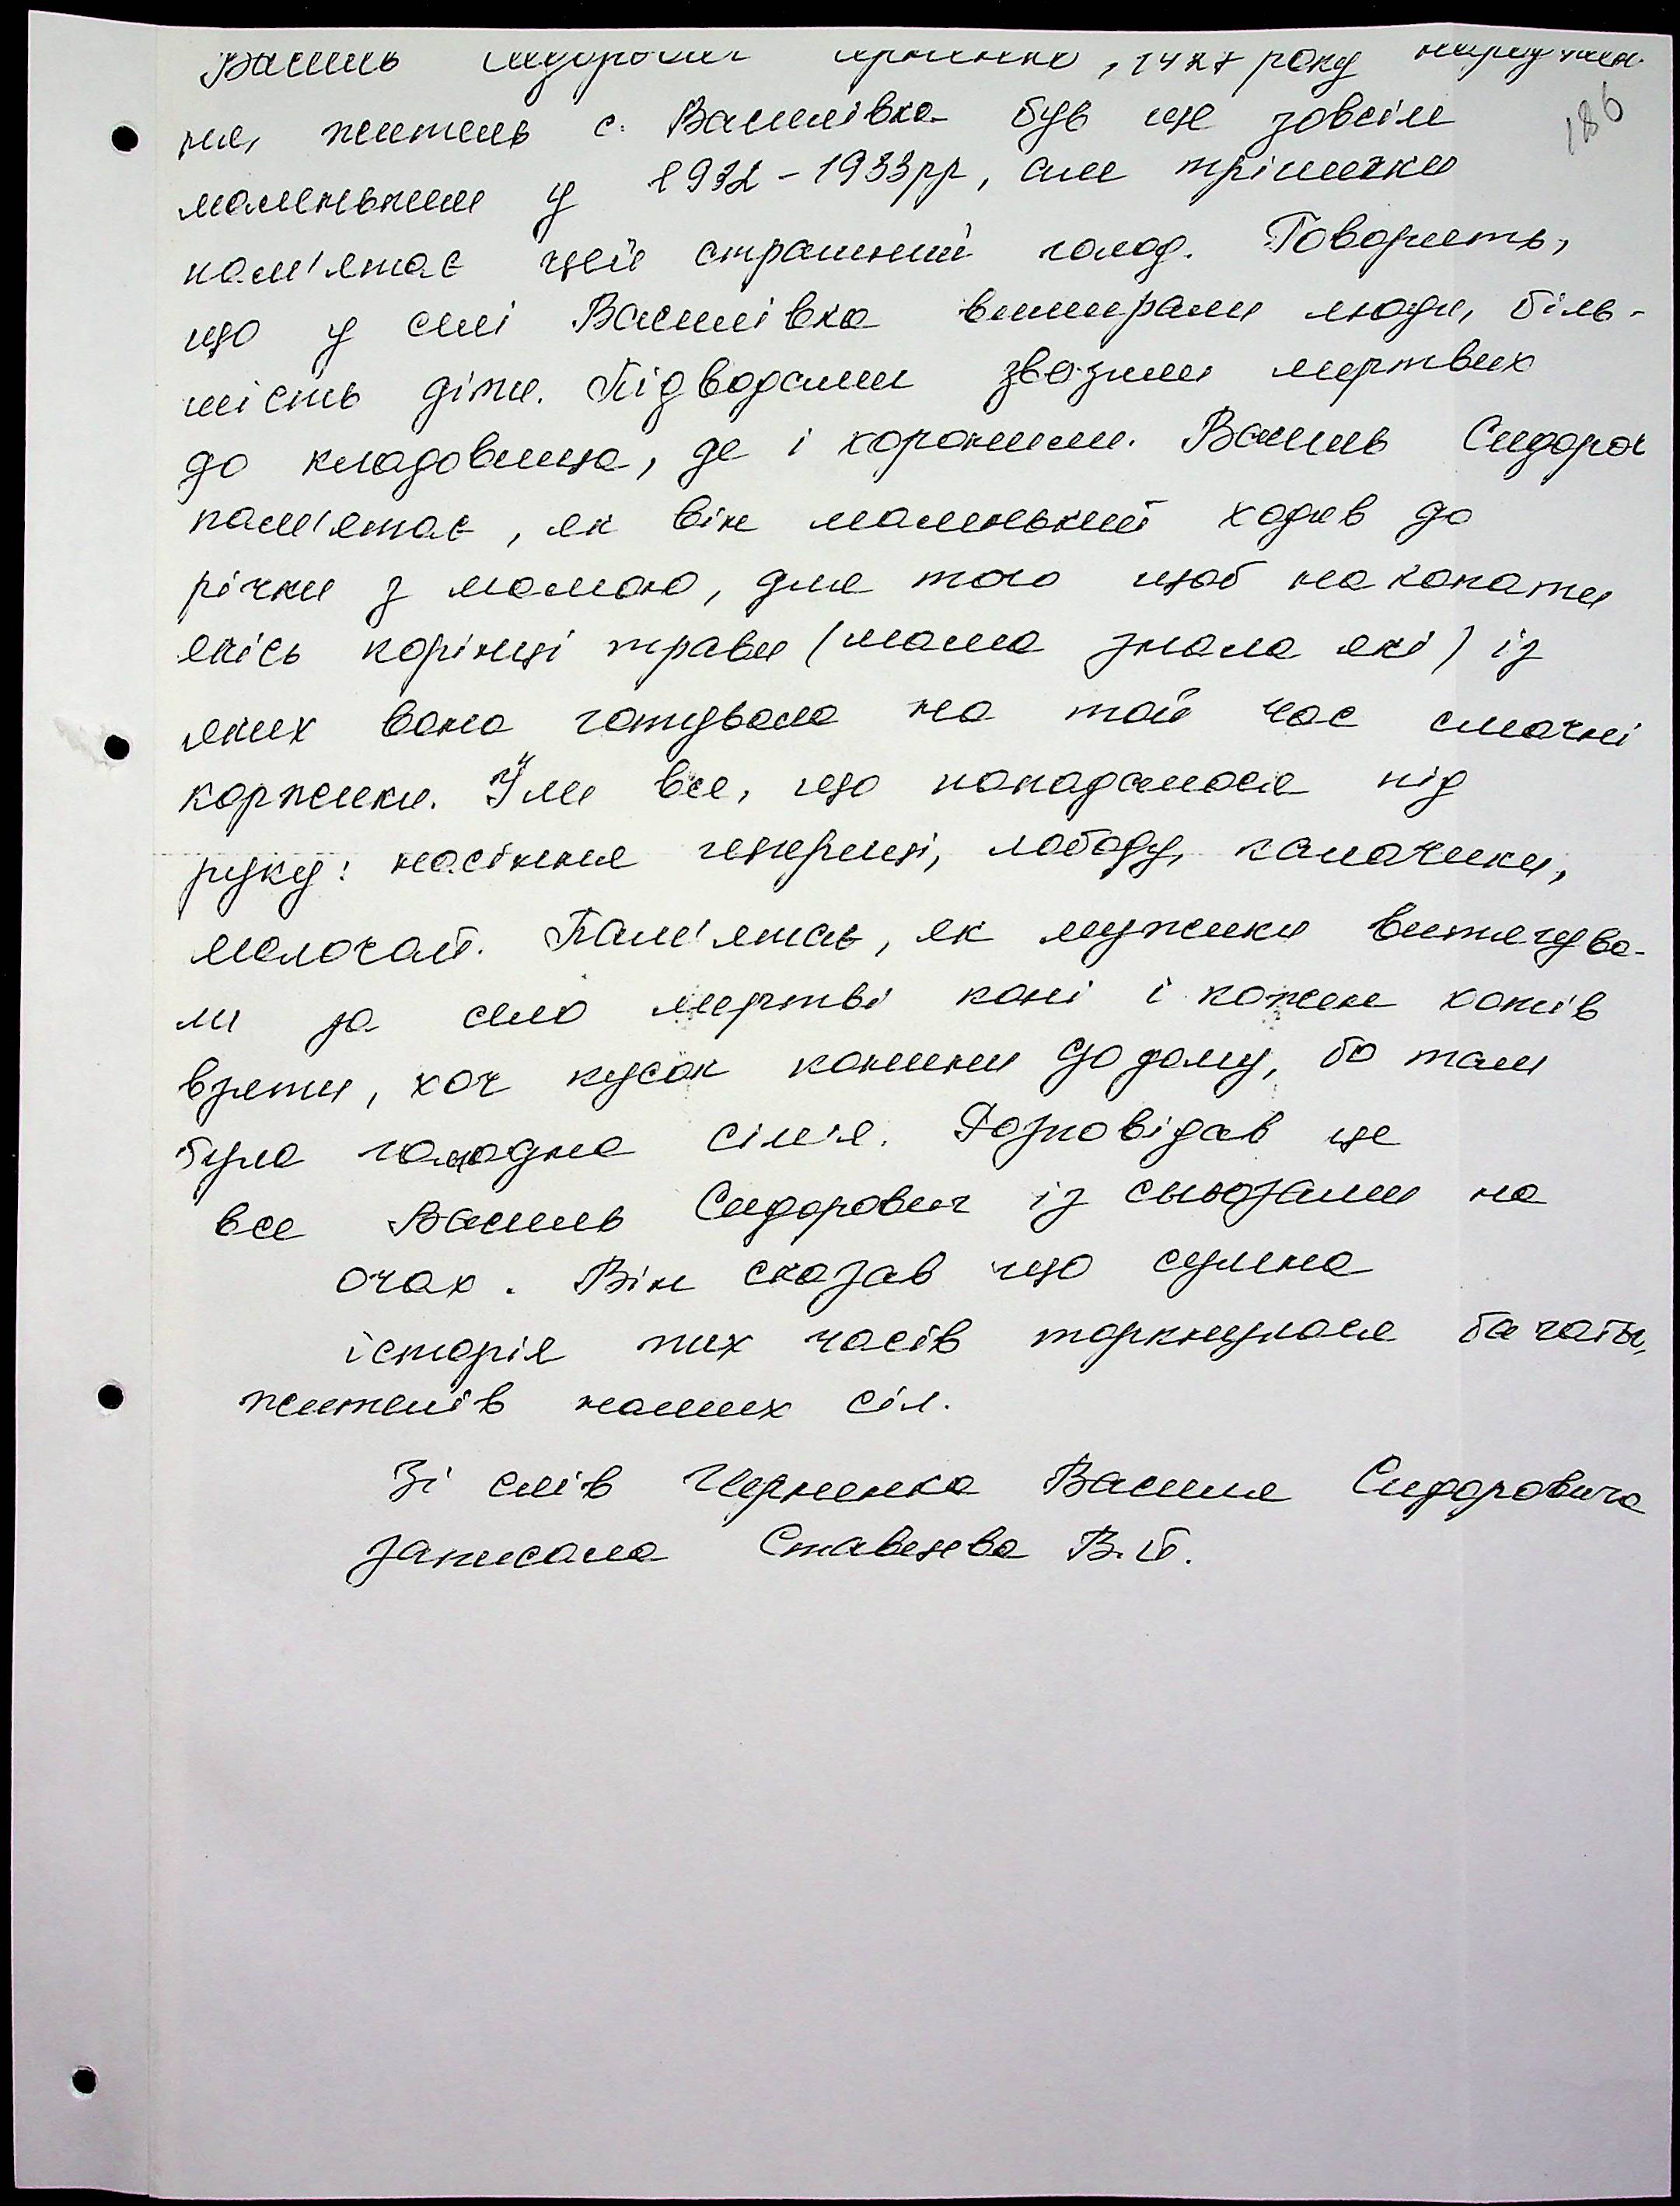 Василь Сидорович Черненко, 1927 року народжен-
186
ня, житель с. Василівка був ще зовсім
маленьким у 1932-1933рр, але трішечки
пам'ятає цей страшний голод. Говорить,
що у селі Василівка вимирали люди, біль-
шість діти. Підводами звозили мертвих
до кладовища, де і хоронили. Василь Сидоров
пам'ятає, як він маленький ходив до
річки з мамою, для того щоб накопати
якісь корінці трави (мама знала які) із
яких вона готувала на той час смачні
коржики. Їли все, що попадалося під
руку: насіння щириці, лободу, калачики,
молочай. Пам'ятає, як мужики витягува-
ли за село мертві коні і кожен хотів
взяти, хоч кусок конини додому, бо там
була голодна сім'я. Розповідав це
все Василь Сидорович із сльозами на
очах. Він сказав що сумна
історія тих часів торкнулася багатьх
жителів наших сіл.
Зі слів Черненка Василя Сидоровича
записала В.Й.